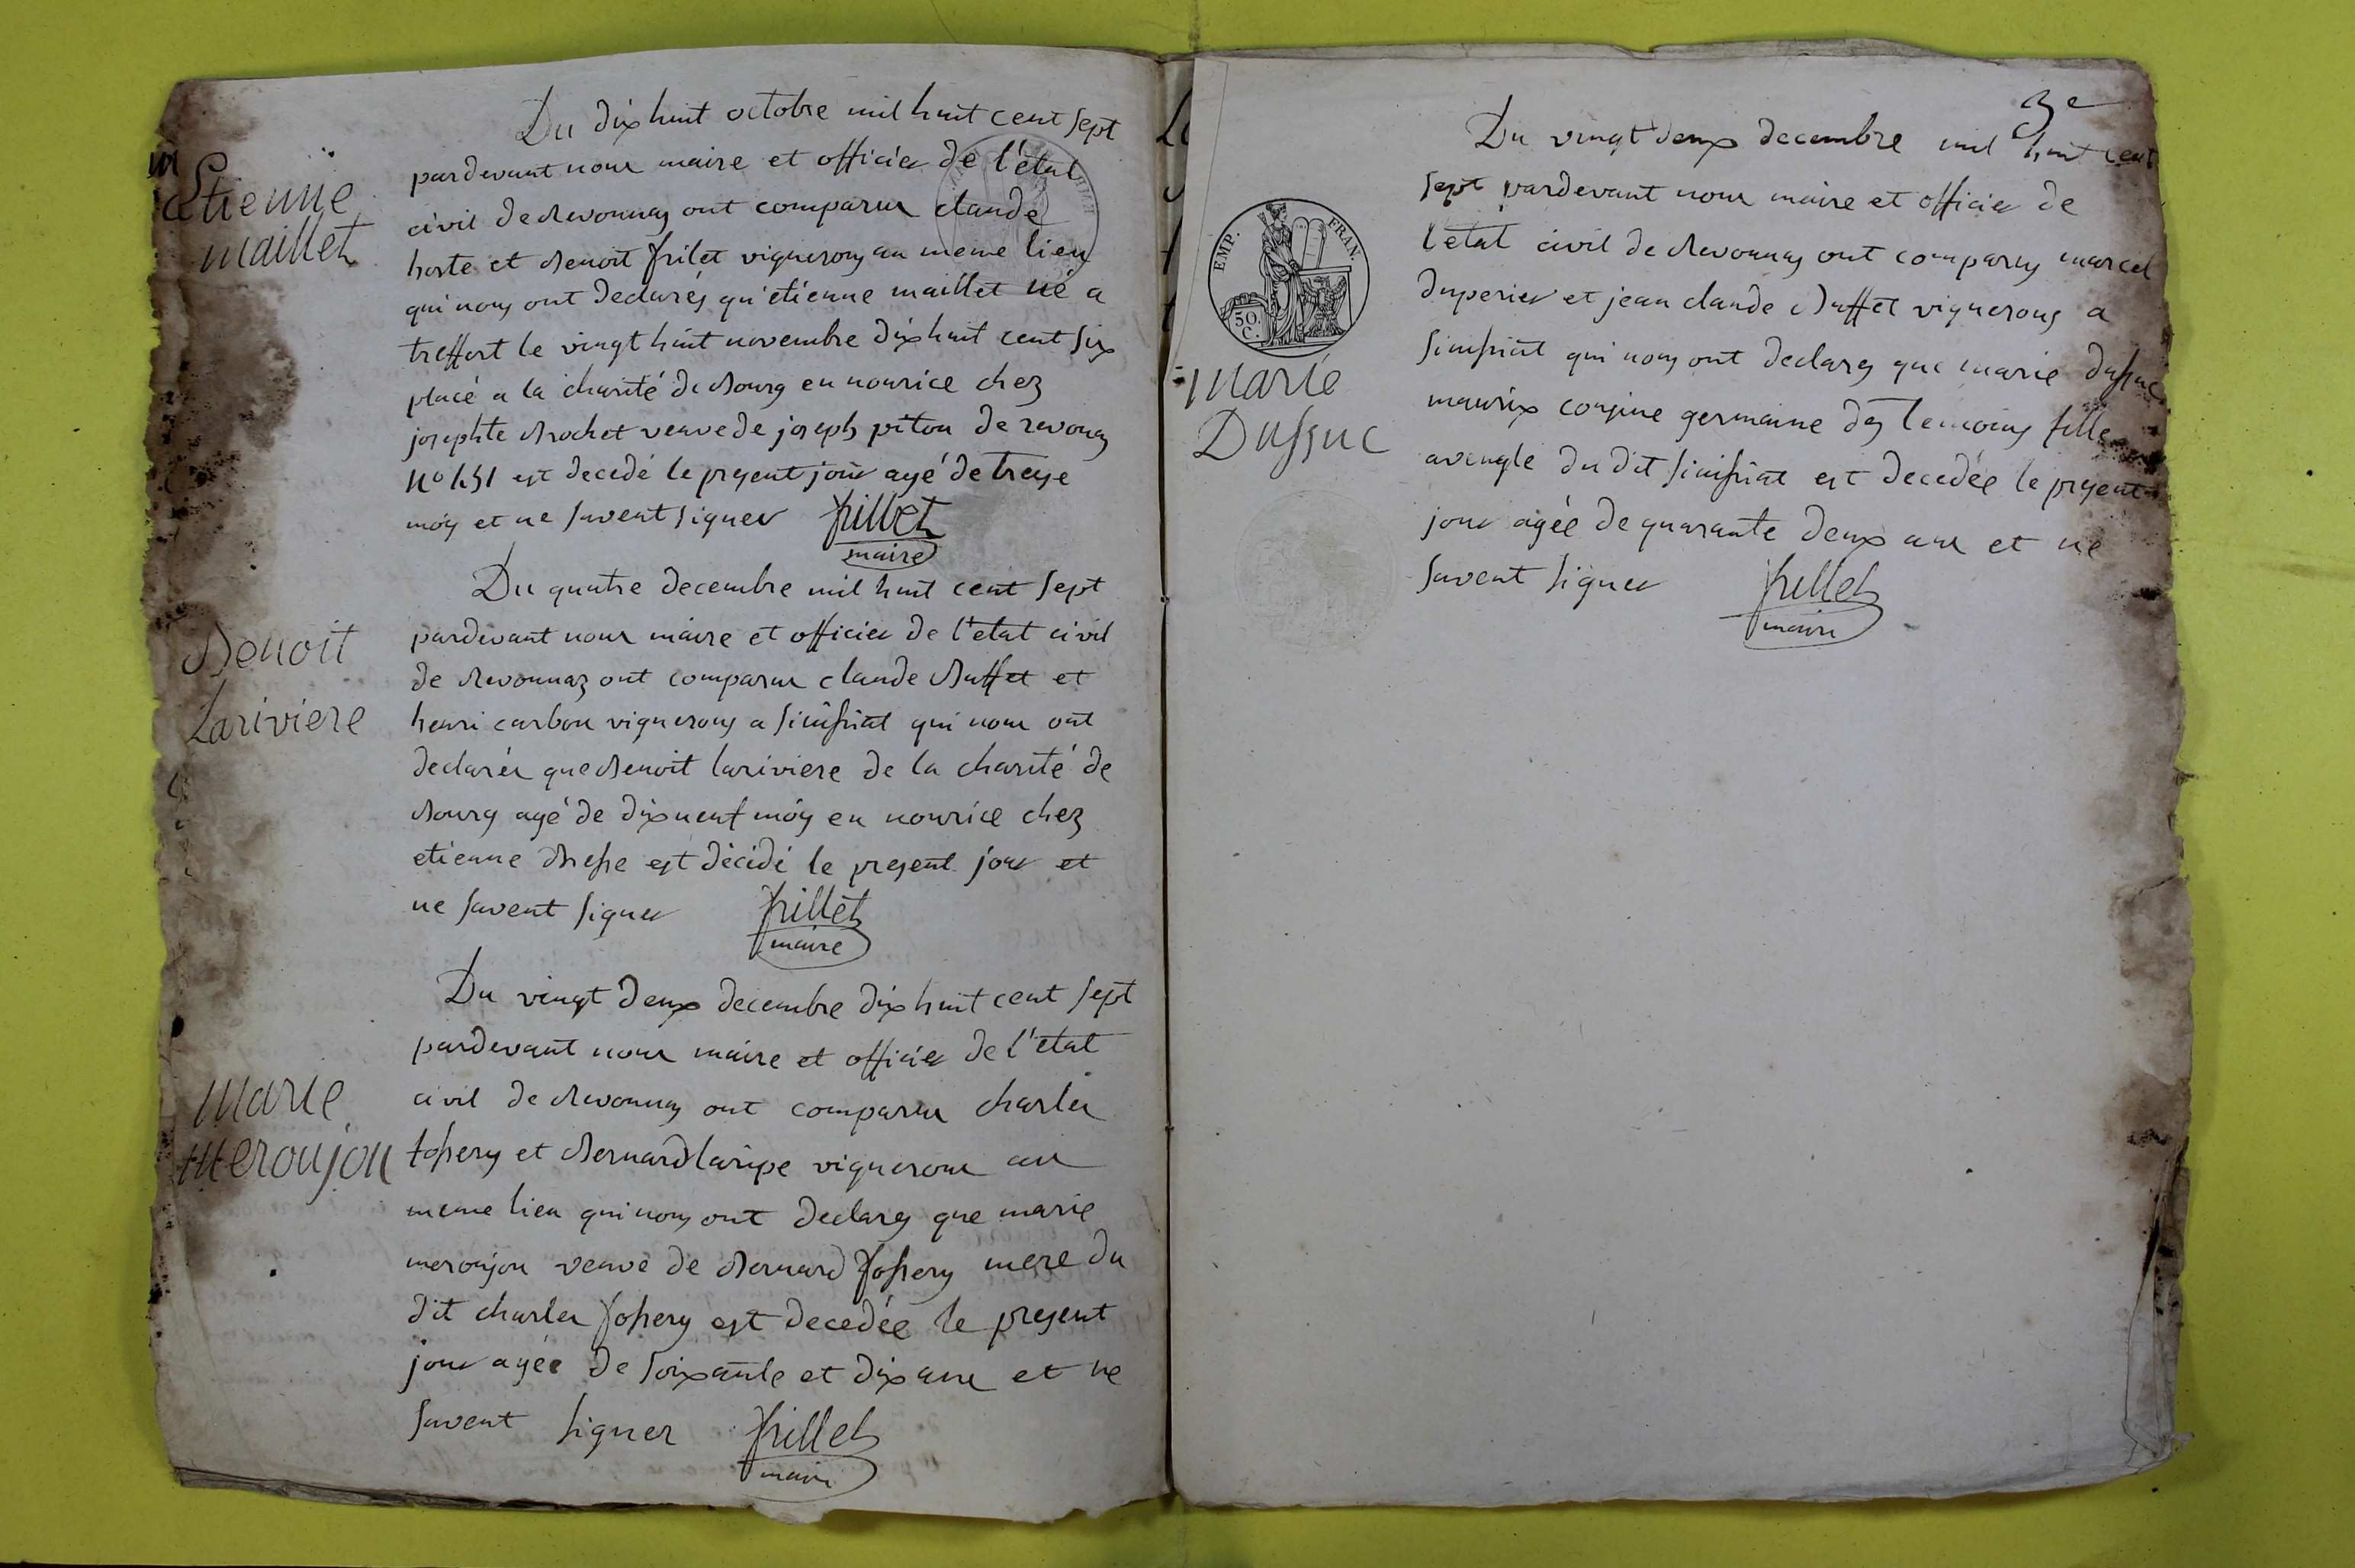 Etienne
maillet
Du dix huit octobre mil huit cent sept
pardevant nous maire et officier de l'état
civil de Revonnas ont comparus claude
hoste et Benoit frilet vignerons au meme lieu
qui nous ont declarés qu'etienne maillet né a
treffort le vingt huit novembre dix huit cent six
placé a la charité de Bourg en nourice chez
josephte Brochet veuve de joseph piton de revonas
N° 151 est decedé le present jour agé de treise
mois et ne savent signer frillet
maire
Benoit
Lariviere
Du quatre decembre mil huit cent sept
pardevant nous maire et officier de l'etat civil
de Revonnaz ont comparus claude Buffet et
henri carbon vignerons a simsriat qui nous ont
declarés que Benoit lariviere de la charité de
Bourg agé de dix neuf mois en nourice chez
etienne est décédé le present jour et
ne savent signer frillet
maire
Marie
meroujon
Du vingt deux decembre dix huit cent sept
pardevant nous maire et officier de l'état
civil de Revonnas ont comparus charles
fossery et Bernard laripe vignerons au
meme lieu qui nous ont declarés que marie
meroujon veuve de Bernard fossery mere du
dit charles fossery est decedée le present
jour agée de soixante et dix ans et ne
savent signer frillet
maire
3e
EMP. FRAN.
50.
C.
Marie
Dussuc
Du vingt deux decembre mil huit cent
sept pardevant nous maire et officier de
l'etat civil de Revonnas ont comparus marcel
duperier et jean claude Buffet vignerons a
simsriat qui nous ont declarés que marie dussuc
maurix cousine germaine des temoins fille
aveugle du dit simsriat est decedée le present
jour agée de quarante deux ans et ne
savent signer frillet
maire